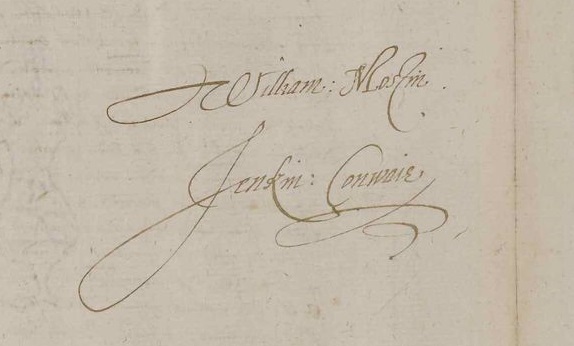 William: Mostin
Jenkin: Conwaie